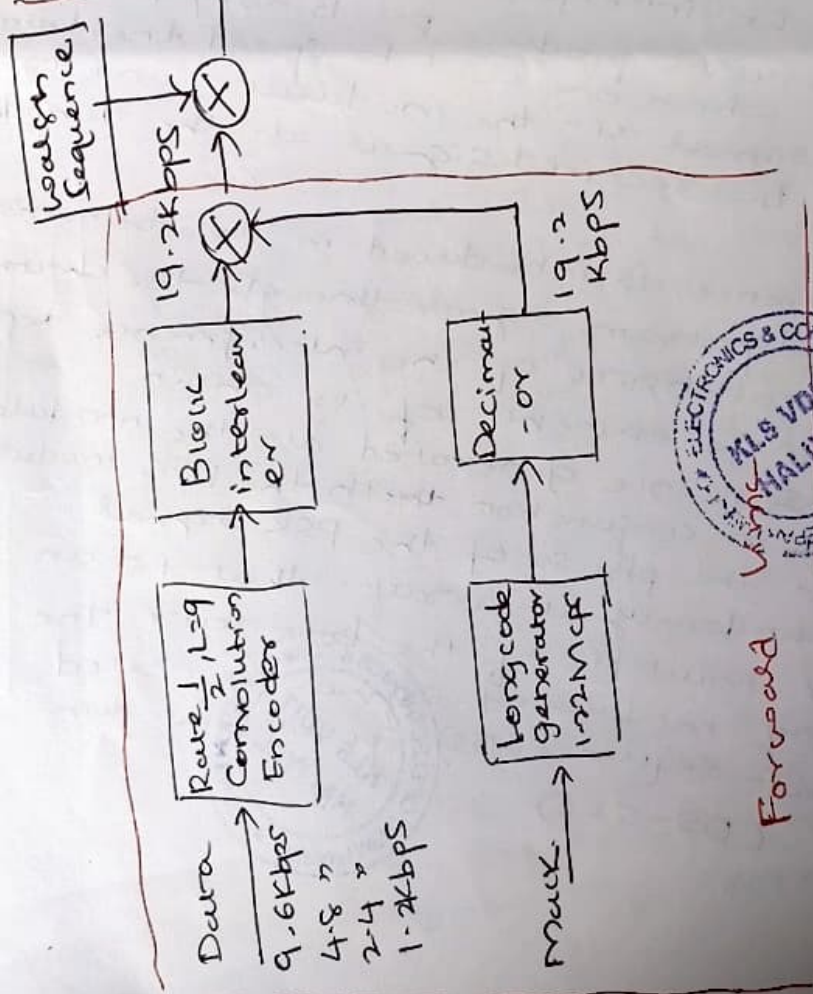 Walsh
Sequence
19.2Kbps
Data
9.6Kbps
4.8 "
2.4 "
1.2Kbps
Rate 1/2, L=9
Convolution
Encoder
Block
interleav
er
Mask
Longcode
generator
Decimat
-or
19.2
Kbps
Forward
ELECTRONICS & CO
KLS VD
HALI